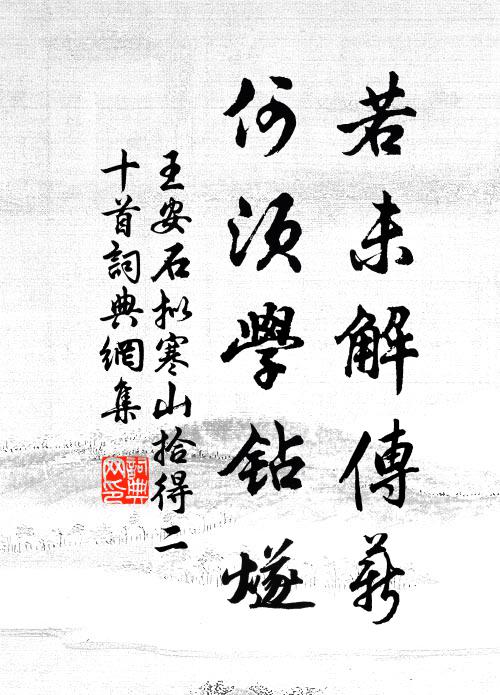 若未解傳薪
何須學鈷燧
王安石拟寒山拾得二
十首詞典網集
詞典
网印